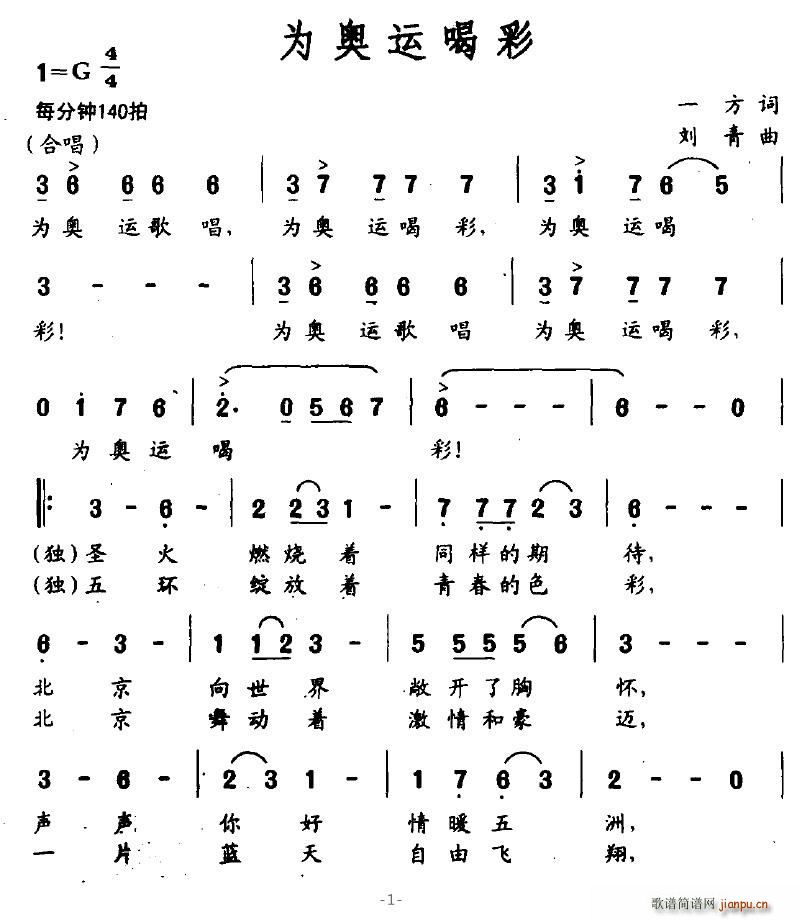 为奥运喝彩
1=G 4/4
每分钟140拍
一 方 词
(合唱)
刘 青 曲
3 6 6 6 6 | 3 7 7 7 7 | 3 1 7 6 5 |
为奥 运歌 唱, 为奥 运喝 彩, 为奥 运喝
3 - - - | 3 6 6 6 6 | 3 7 7 7 7 |
彩! 为奥 运歌 唱 为奥 运喝 彩,
0 1 7 6 | 2· 0 5 6 7 | 6 - - - | 6 - - 0 |
为奥运 喝 彩!
‖: 3 - 6 - | 2 2 3 1 - | 7 7 7 2 3 | 6 - - - |
(独)圣 火 燃烧着 同样的期 待,
(独)五 环 绽放着 青春的色 彩,
6 - 3 - | 1 1 2 3 - | 5 5 5 5 6 | 3 - - - |
北 京 向世界 敞开了胸 怀,
北 京 舞动着 激情和豪 迈,
3 - 6 - | 2 3 1 - | 1 7 6 3 | 2 - - 0 |
声 声 你 好 情暖五 洲,
一 片 蓝 天 自由飞 翔,
-1-
歌谱简谱网
jianpu.cn